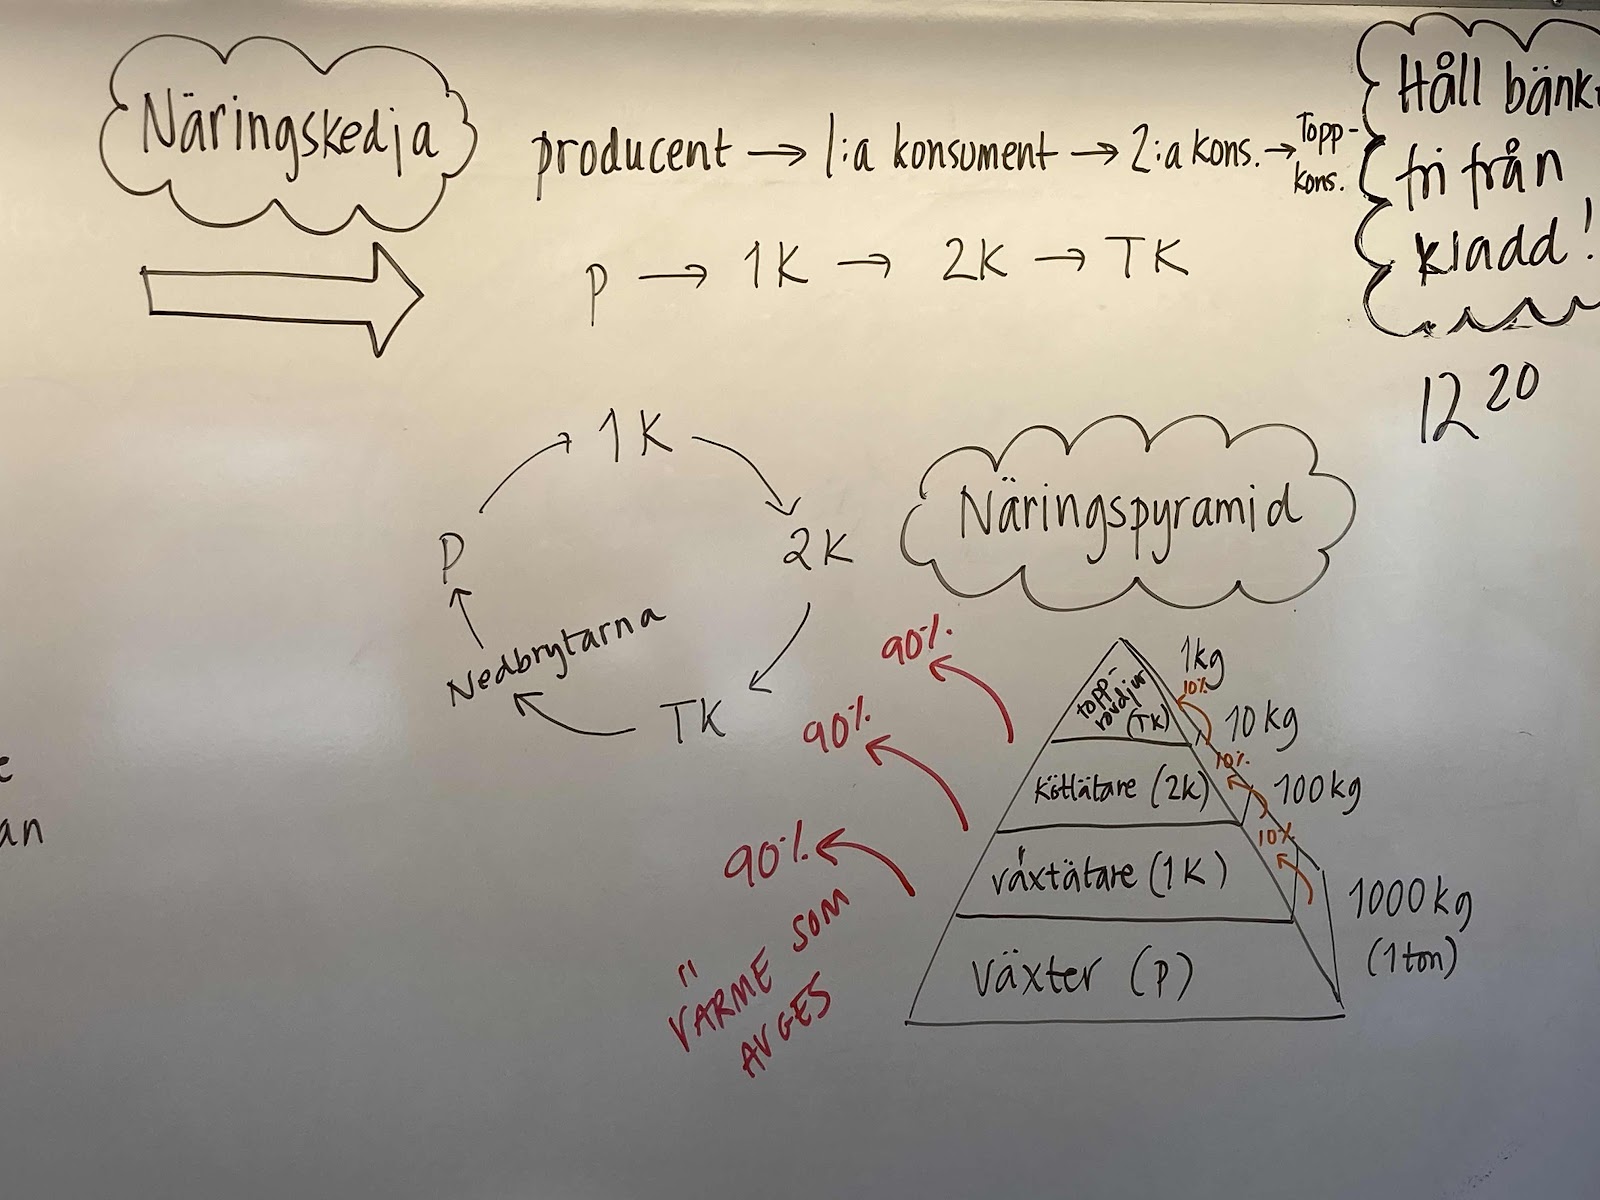 Näringskedja
producent → 1:a konsument → 2:a kons. → Topp-
kons.
P → 1K → 2K → TK
Håll bänk
fri från
kladd!
12 20
1K
2K
TK
Nedbrytarna
P
Näringspyramid
topp-
rovdjur
(TK)
köttätare (2K)
växtätare (1K)
växter (P)
1kg
10%
10kg
10%
100kg
10%
1000kg
(1ton)
90%
90%
90%
VÄRME SOM
AVGES
an